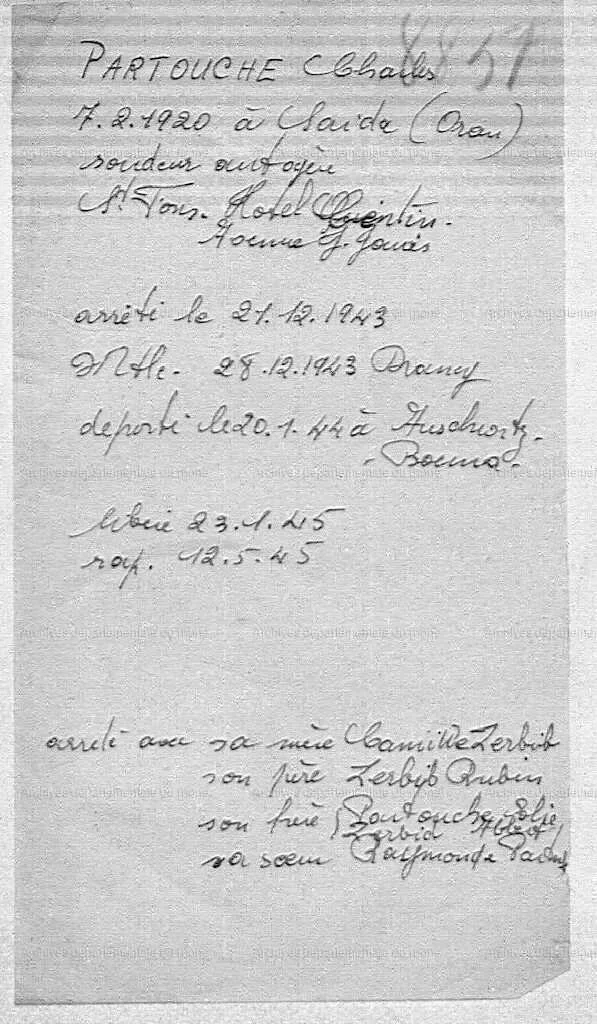 8857
PARTOUCHE Charles
7.2.1920 à Saida (Oran)
soudeur autogène
St Fons. Hotel Quentin.
Avenue J. Jaurès
arrêté le 21.12.1943
Mtlc. 28.12.1943 Drancy
déporté le 20.1.44 à Auschwitz.
- Bouna -
libéré 23.1.45
rap. 12.5.45
arrêté avec sa mère Camille Zerbib
son père Zerbib Rubin
son frère Partouche Elie
Zerbib
sa soeur Raymonde
Archives départementale du rhone